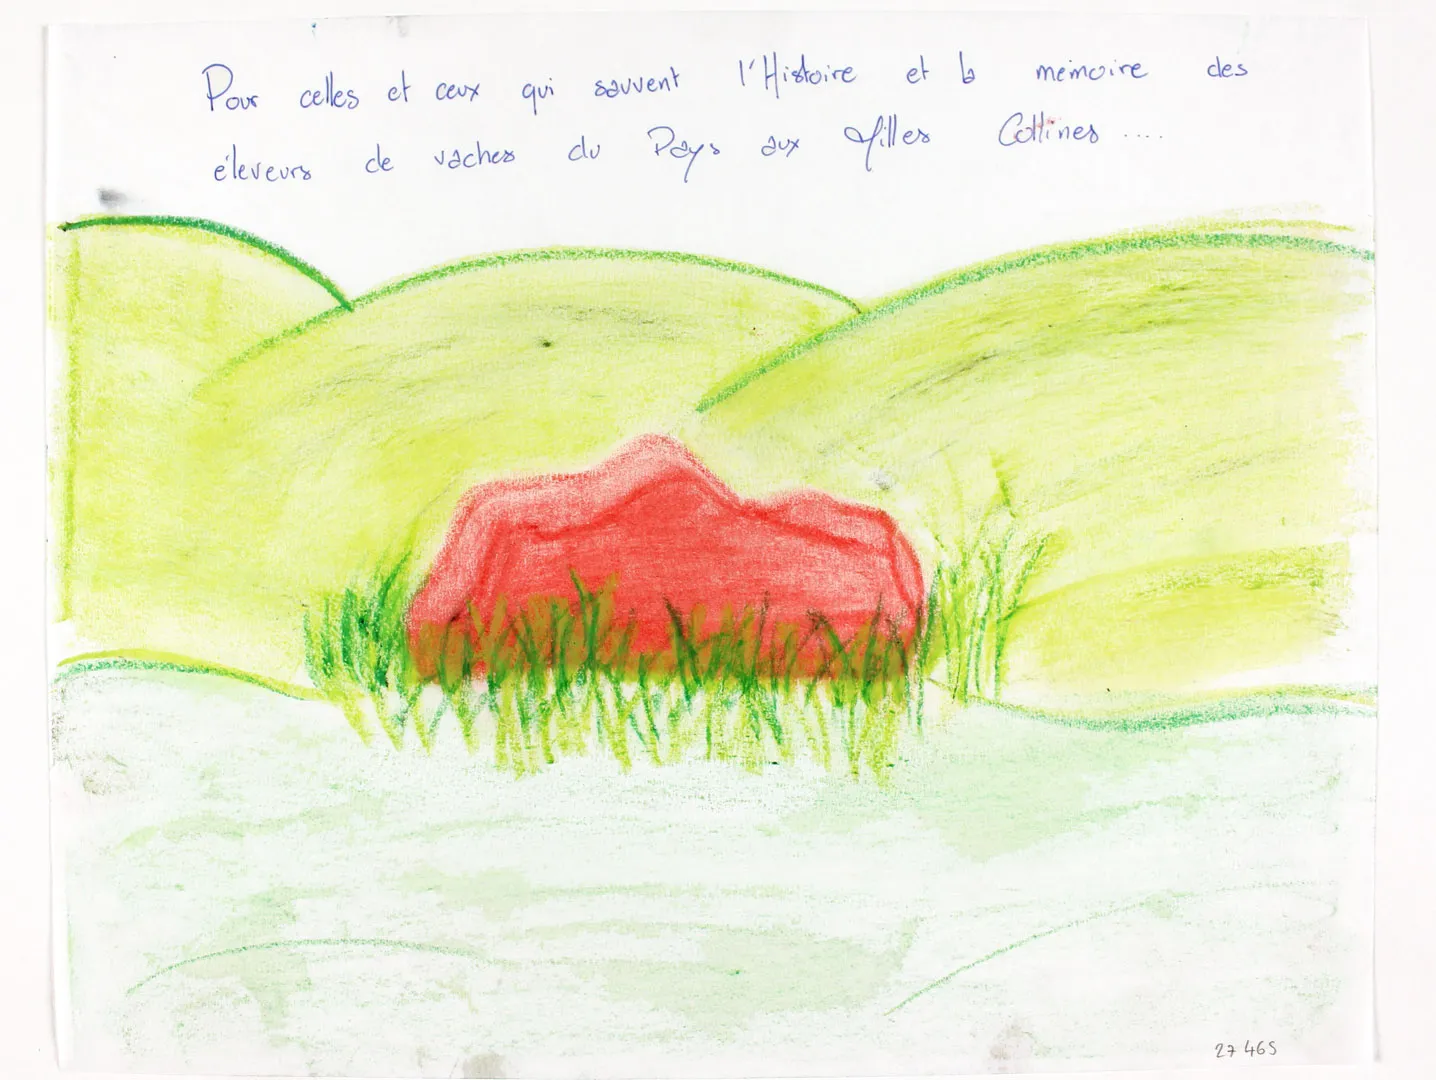 Pour celles et ceux qui sauvent l'Histoire et la mémoire des
éleveurs de vaches du Pays aux Milles Collines ....
27 465